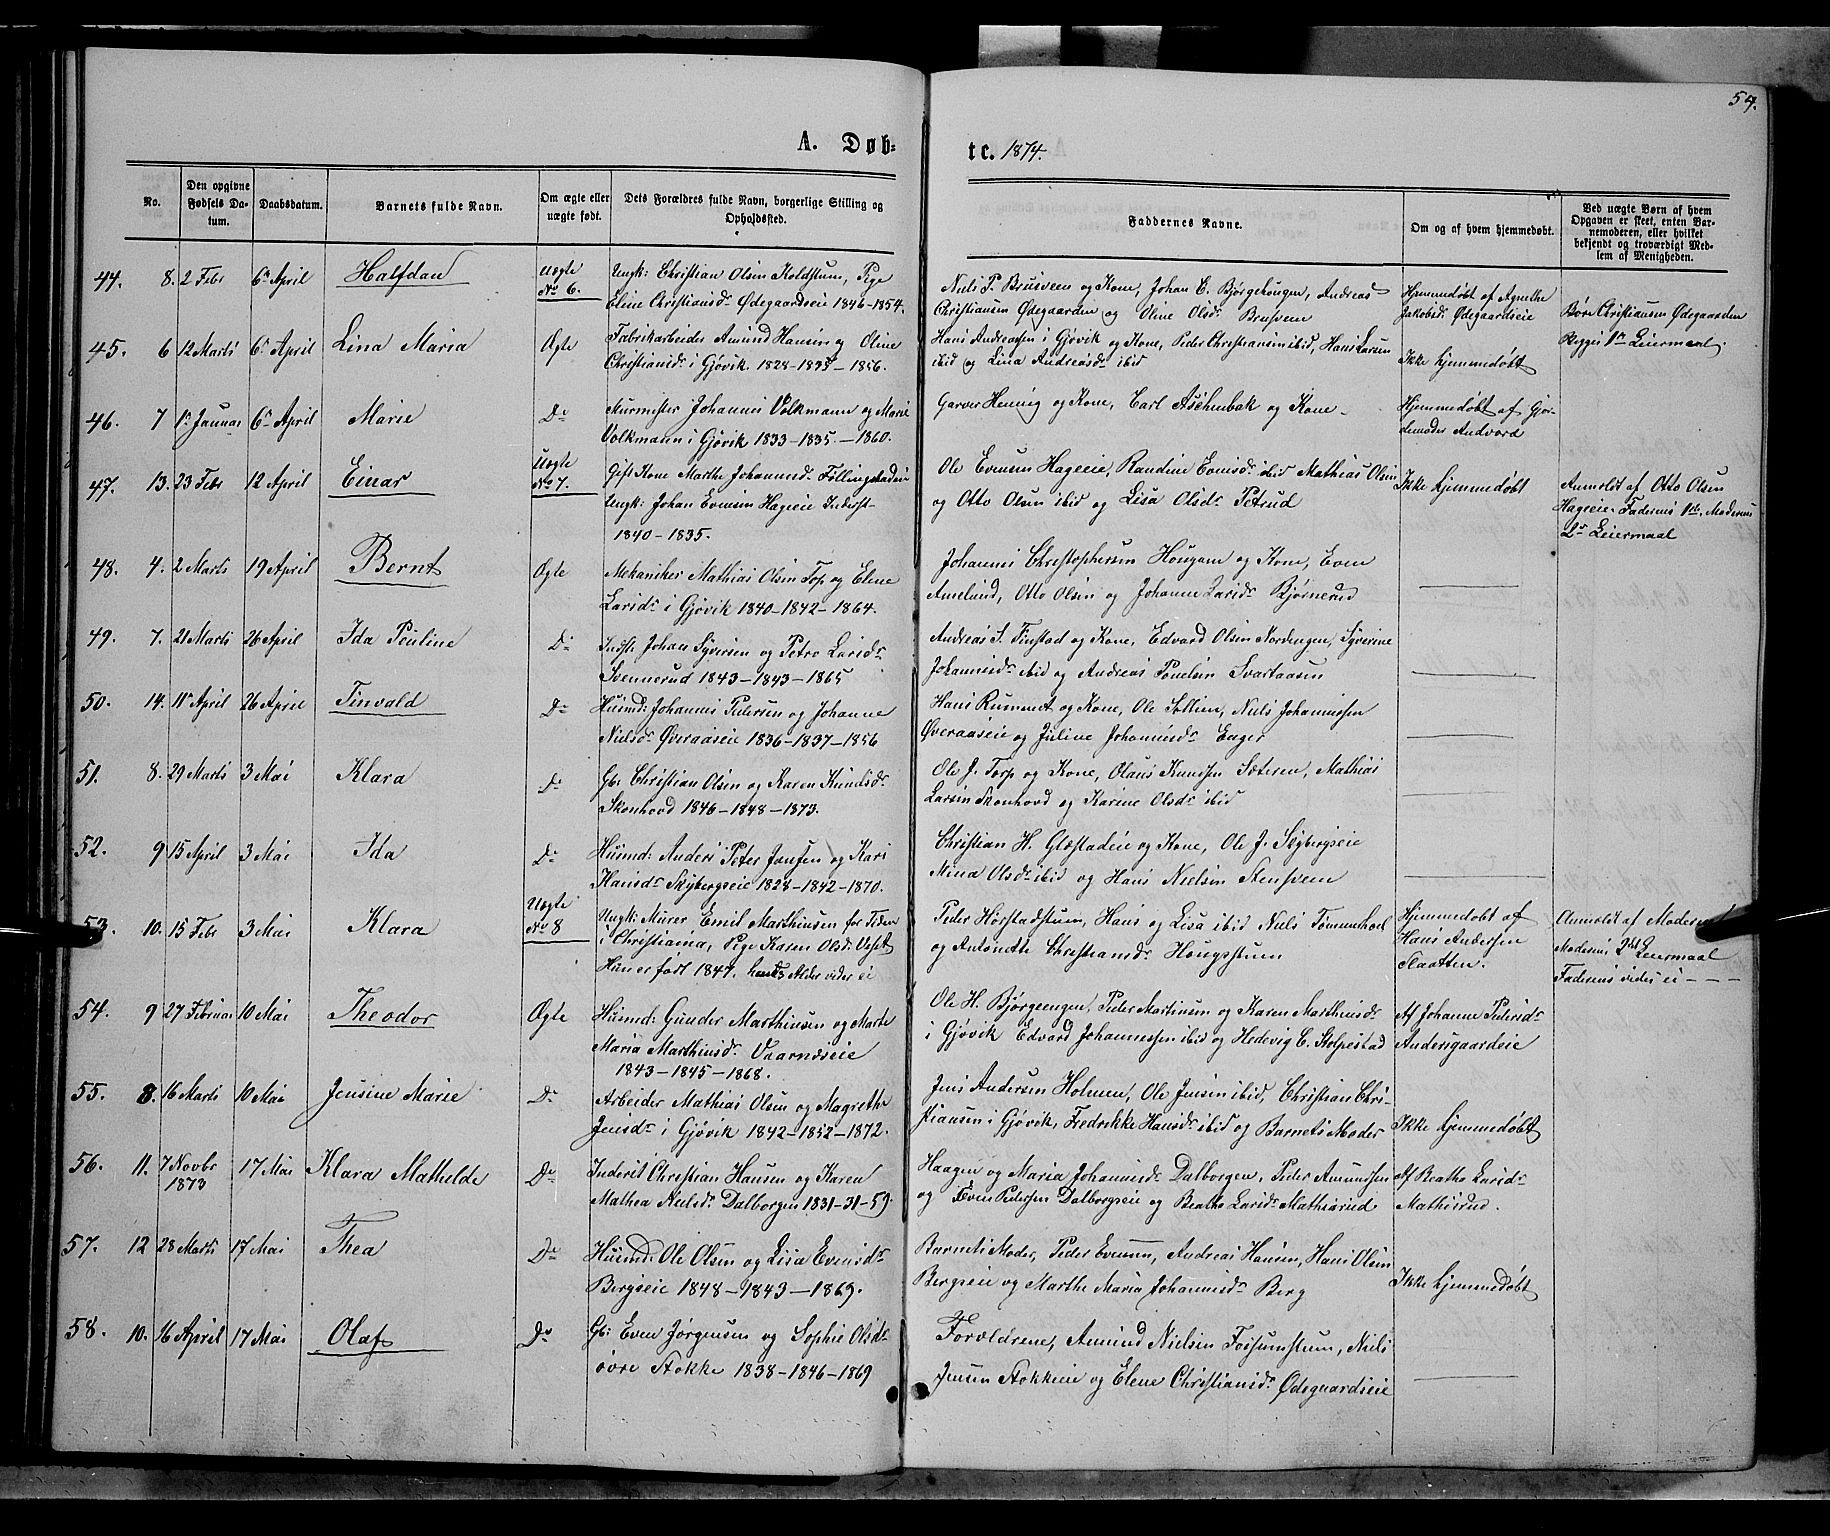 54.
A. Døb=
te. 1874.
No.
Den opgivne Fødsels Datum.
Daabsdatum.
Barnets fulde Navn.
Om ægte eller uægte født.
Dets Forældres fulde Navn, borgerlige Stilling og Opholdssted.
Faddernes Navne.
Om og af hvem hjemmedøbt.
Ved uægte Børn af hvem Opgaven er skeet, enten Barnemoderen, eller hvilket bekjendt og troværdigt Medlem af Menigheden.
44. 8. 2 Febr 6te April Halfdan Uægte No 6.
Ungk: Christian Olsen Koldstum, Pige
Eline Christiansdr Ødegaardseie 1846-1854.
Niels P. Brusveen og Kone, Johan E. Bjørgehougen, Andreas
Christiansen Ødegaarden og Oline Olsdr Brusveen
Hjemmedøbt af Agnethe
Jakobsdr Ødegaardseie
Børe Christiansen Ødegaarden
Begges 1ste Leiermaal.
45. 6 12 Marts 6te April Lina Maria Ægte
Fabrikarbeider Amund Hansen og Oline
Christiansdr i Gjøvik. 1828-1835-1856.
Hans Andreassen i Gjøvik og Kone, Peder Christiansen ibid, Hans Larsen
ibid og Lina Andreasdr ibid
Ikke hjemmedøbt
46. 7 1ste Januar 6te April Marie Do
Murmester Johannes Volkmann og Marie
Volkmann i Gjøvik 1833-1835.-1860.
Garver Hennig og Kone, Carl Aschenbak og Kone
Hjemmedøbt af Gjor-
demoder Andvord
47. 13. 23 Febr 12 April Einar Uægte No 7.
Gift Kone Marthe Johannesdr Föllingstadeie
Ungk: Johan Evensen Hageeie Inderst
1840-1835.
Ole Evensen Hageeie, Randine Evensdr ibid Mathias Olsen
og Otto Olsen ibid og Lisa Olsdr Petrud
Ikke hjemmedøbt
Anmeldt af Otto Olsen
Hageeie. Faderens 1ste, Moderens
2det Leiermaal
48. 4. 2 Marts 19 April Bernt Ægte
Mekaniker Mathias Olsen Torp og Elene
Larsdr i Gjøvik 1840-1842-1864.
Johannes Christophersen Hougan og Kone, Even
Amelund, Otto Olsen og Johanne Larsdr Bjørnerud
49. 7. 21 Marts 26 April Ida Pouline Do
Inderst Johan Syversen og Petro Larsdr
Svennerud 1843-1843-1865
Andreas S. Finstad og Kone, Edvard Olsen Nordengen, Syverine
Johannesdr ibid og Andreas Poulsen Svartaasen
50. 14. 11te April 26 April Tinvald Do
Husmd: Johannes Pedersen og Johanne
Nielsdr Øveraaseie 1836-1837-1856
Hans Rummet og Kone, Ole Sollien, Niels Johannessen
Øveraaseie og Juline Johannesdr Enger
51. 8. 29 Marts 3 Mai Klara Do
Gbr Christian Olsen og Karen Knudsdr
Skonhovd 1846-1848-1873.
Ole J. Torp og Kone, Olaus Knudsen Sæteren, Mathias
Larsen Skonhovd og Karine Olsdr ibid
52. 9 15 April 3 Mai Ida Do
Husmd: Anders Peter Jensen og Kari
Hansdr Skybergseie 1828-1842-1870.
Christian H. Glæstadeie og Kone, Ole J. Skybergseie
Mina Olsdr ibid og Hans Nielsen Stensveen
53. 10. 15 Febr 3 Mai Klara Uægte No 8
Ungk: Murer Emil Marthinsen for Tiden
i Christiania, Pige Karen Olsdr Veset
Hun er født 1847. hans Alder vides ei
Peder Hørstadstuen, Hans og Lisa ibid Niels Tømmerhol
og Antonette Christiansdr Hougsstuen
Hjemmedøbt af
Hans Andersen
Slaatten.
Anmeldt af Moderen
Moderens 2det Leiermaal
Faderens vides ei - - -
54. 9 27 Februar 10 Mai Theodor Ægte
Husmd: Gunder Marthinsen og Marte
Maria Marthinsdr Vaarnæseie
1843-1845-1868.
Ole H. Bjørgeengen, Peder Martinsen og Karen Marthinsdr
i Gjøvik Edvard Johannessen ibid og Hedevig E. Stolpestad
Af Johanne Pedersdr
Andersgaardeie
55. 8. 16 Marts 10 Mai Jensine Marie Do
Arbeider Mathias Olsen og Magrethe
Jensdr i Gjøvik 1842-1852-1872.
Jens Andersen Holmen, Ole Jensen ibid, Christian Chri-
stiansen i Gjøvik, Fredrikke Hansdr ibid og Barnets Moder
Ikke hjemmedøbt
56. 11. 7 Novbr 1873 17 Mai Klara Mathilde Do
Inderst Christian Hansen og Karen
Mathea Nielsdr Dalborgen 1831-31-59
Haagen og Maria Johannesdr Dalborgen, Peder Amundsen
og Even Pedersen Dalborgseie og Beathe Larsdr Mathisrud
Af Beathe Larsdr
Mathisrud.
57. 12 28 Marts 17 Mai Thea Do
Husmd: Ole Olsen og Lisa Evensdr
Bergseie 1848-1843-1869.
Barnets Moder, Peder Evensen, Andreas Hansen, Hans Olsen
Bergseie og Marthe Maria Johannesdr Berg
Ikke hjemmedøbt
58. 10. 16 April 17 Mai Olaf Do
Gb: Even Jørgensen og Sophie Olsdr
øvre Stokke 1838-1846-1869
Forældrene, Amund Nielsen Fossumstuen, Niels
Jensen Stokkeie og Elene Christiansdr Ødegaardseie